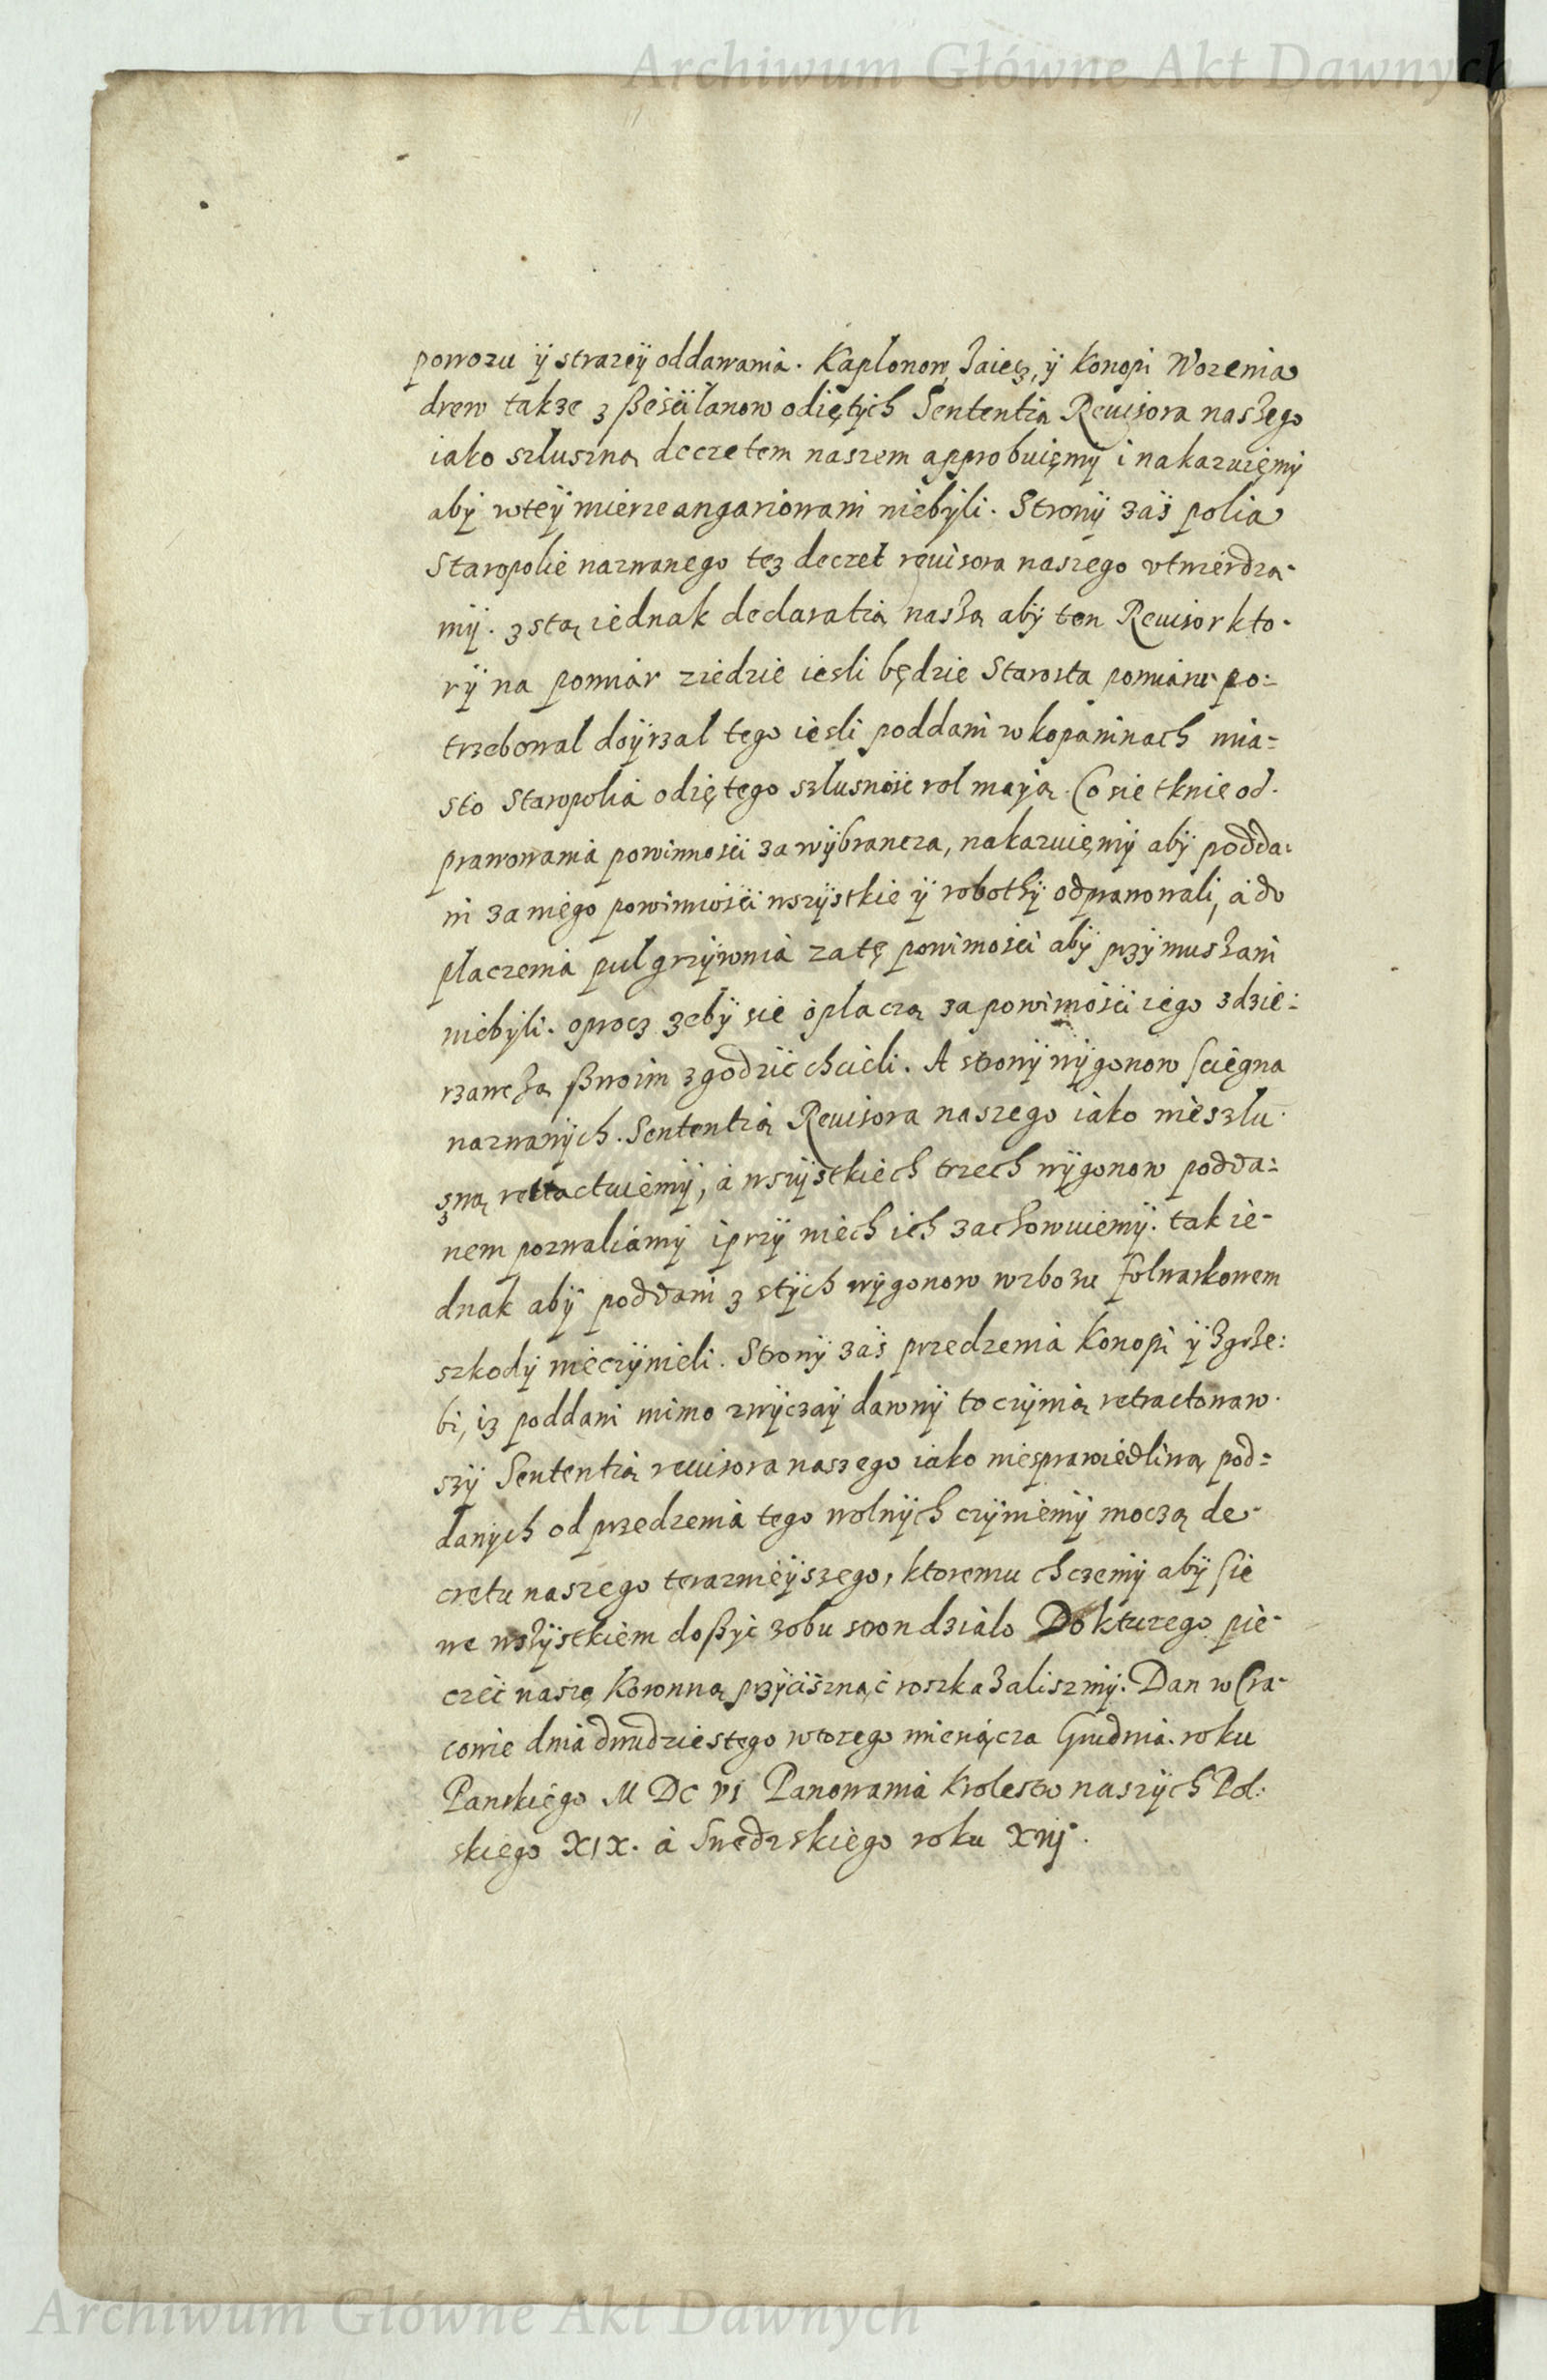 Archiwum Główne Akt Dawnych
powozu ÿ strazeÿ oddawania. Kaplonow, Jaiec, ÿ Konopi Wozenia
drew takze z sześci lanow odiętÿch Sententia Revisora naszego
iako szluszną decretem naszem approbuięmÿ i nakazuięmÿ
abÿ wteÿ mierze angariowani niebÿli. Stronÿ zaś polia
Staropolie nazwanego tez decret revisora naszego utwierdza-
mÿ. z stą iednak declaratią naszą abÿ ten Revisor kto-
rÿ na pomiar ziedzie iesli będzie Starosta pomiaru po-
trzebowal doÿrzal tego iesli poddani w kopaninach mia-
sto Staropolia odiętego szlusnosc rol maią. Co sie tknie od-
prawowania powinnosci za wÿbrancza, nakazuięmÿ abÿ podda-
ni za niego powinnosci wszÿstkie ÿ robothÿ odprawowali, a do
placzenia pul grzÿwnia za tę powinnosci abÿ przÿmuszani
niebÿli. oprocz zebÿ sie oplaczą za powinnosci iego z dzie-
rzawczą swoim zgodzić chcieli. A stronÿ wÿgonow sciegna
nazwanÿch. Sententią Revisora naszego iako nieszlu-
szną retractuiemÿ, a wszÿstkiech trzech wÿgonow podda-
nem pozwaliamÿ i przÿ niech ich zachowuiemÿ. tak ie-
dnak abÿ poddani z stÿch wÿgonow w zbozu folwarkowem
szkodÿ nieczÿnieli. Stronÿ zaś przedzenia Konopi ÿ Zgrze-
bi, iz poddani mimo zwÿczaÿ dawnÿ to czÿnią retractowaw-
szÿ Sententią revisora naszego iako niesprawiedliwą pod-
danÿch od przedzenia tego wolnÿch czÿniemÿ moczą de-
cretu naszego terazniejszego, ktoremu chczemÿ abÿ sie
we wszÿstkiem doszÿc z obu stron dzialo Do kturego pie-
częć naszę Koronną przÿcisznąć roszkazaliszmÿ. Dan w Cra-
cowie dnia dwudziestego wtorego miesiącza Grudnia. roku
Panskiego M DC VI Panowania Krolestw naszÿch Pol-
skiego XIX. a Swedzskiego roku XIIj.
Archiwum Główne Akt Dawnych